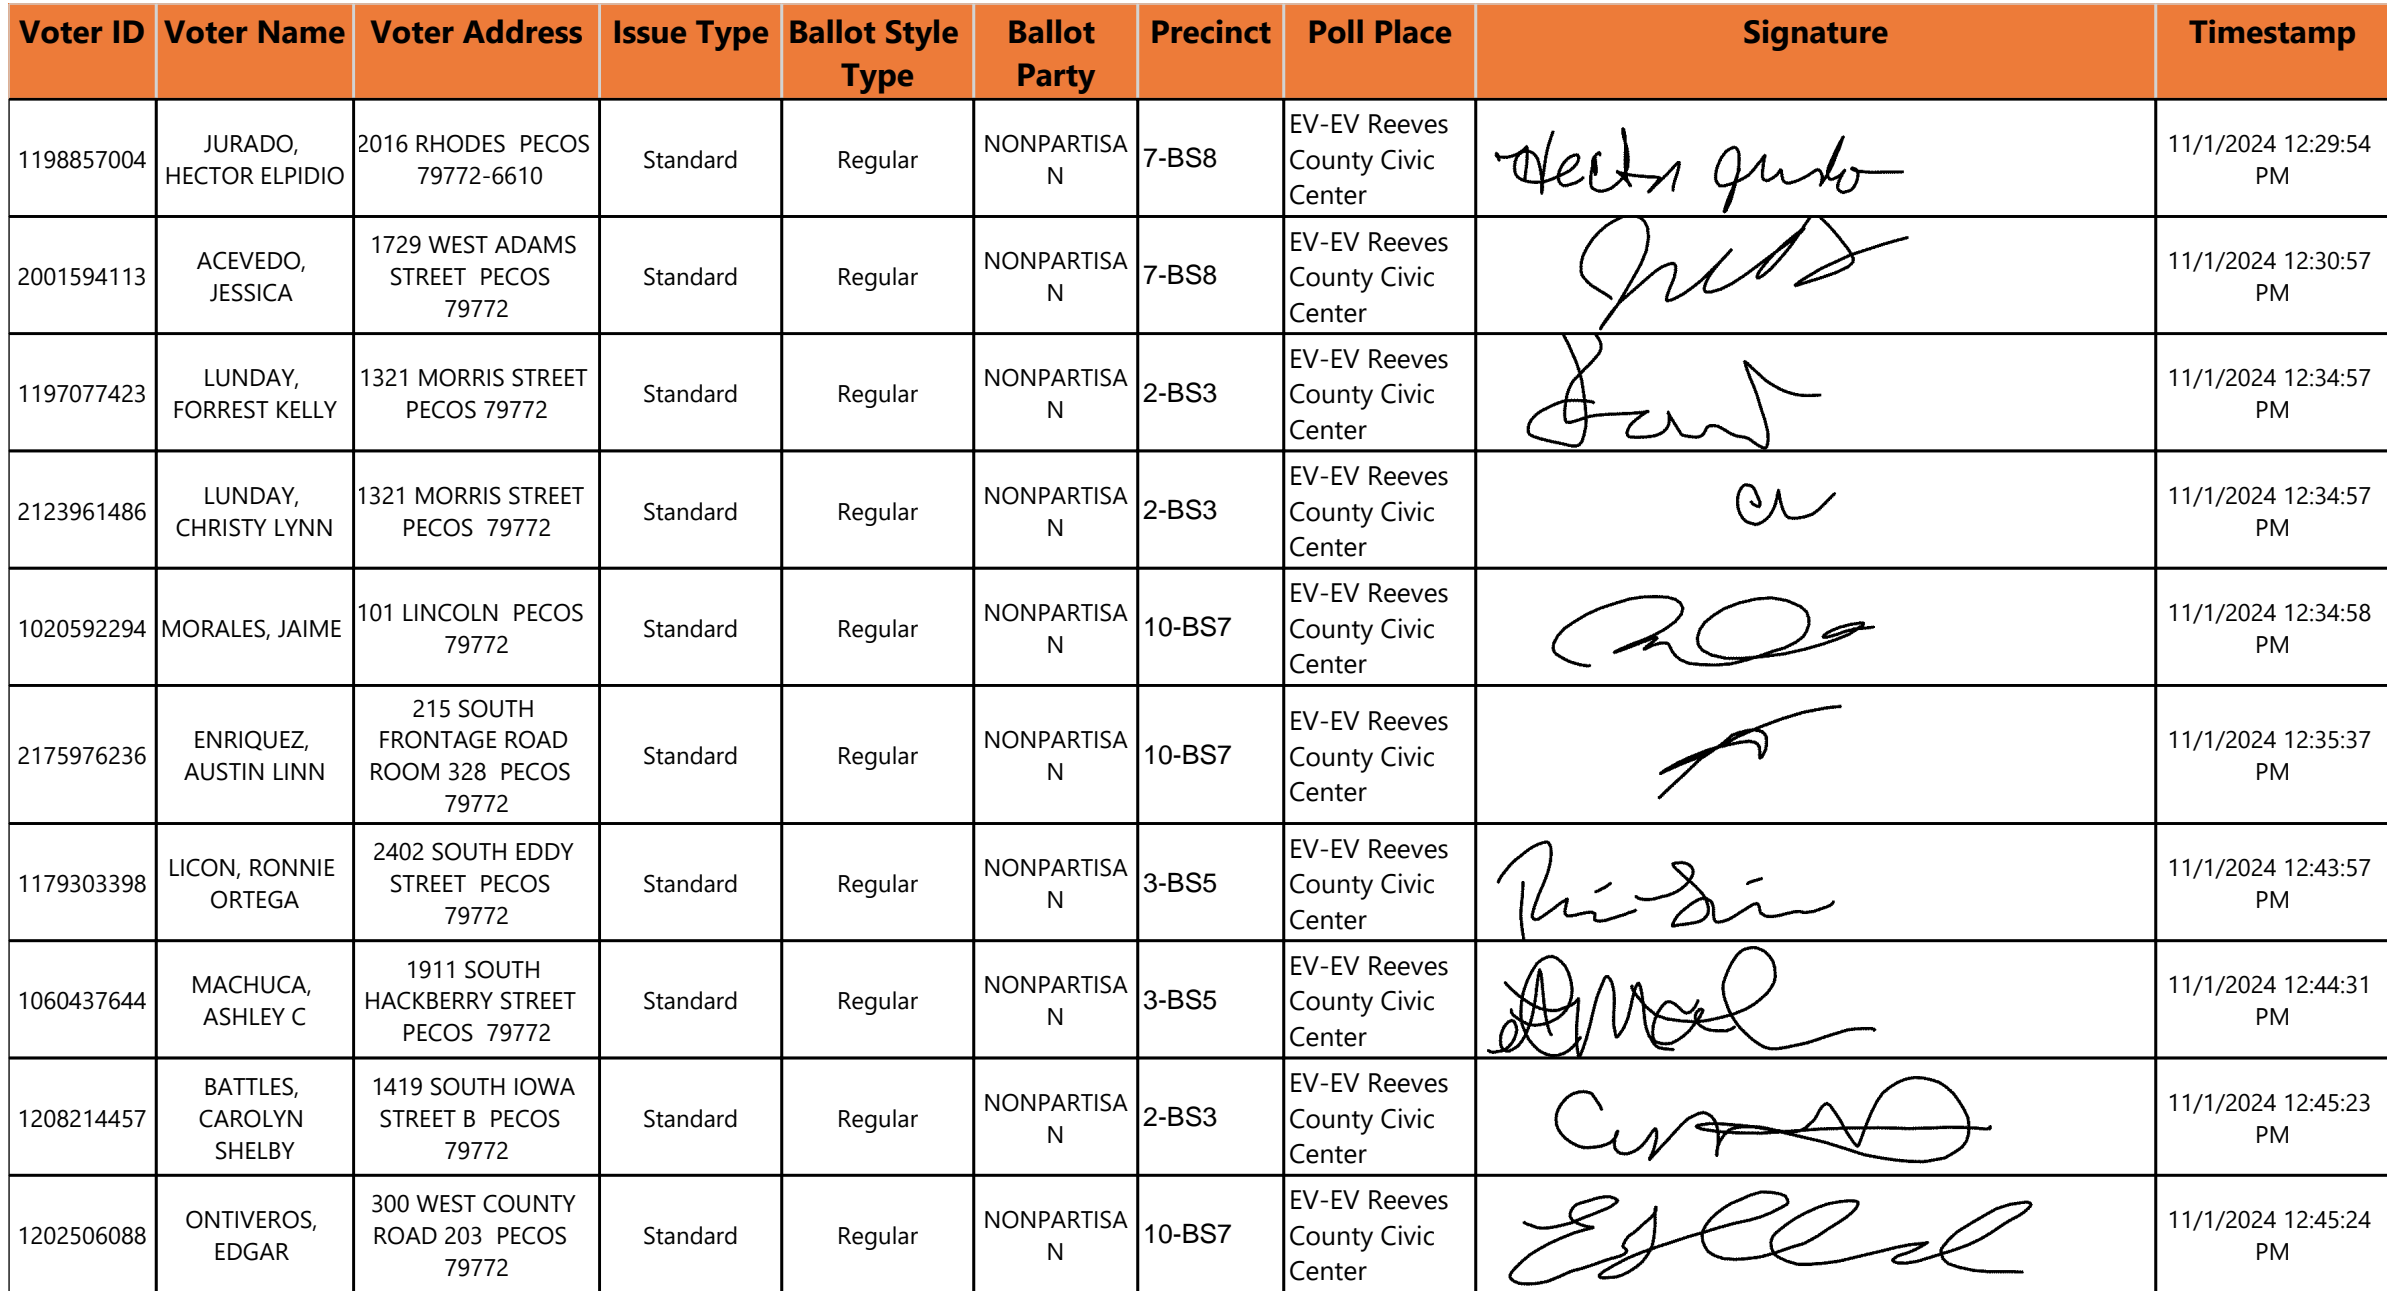 Voter ID Voter Name Voter Address Issue Type Ballot Style Type Ballot Party Precinct Poll Place Signature Timestamp
1198857004 JURADO, HECTOR ELPIDIO 2016 RHODES PECOS 79772-6610 Standard Regular NONPARTISAN 7-BS8 EV-EV Reeves County Civic Center Hector Jurado 11/1/2024 12:29:54 PM
2001594113 ACEVEDO, JESSICA 1729 WEST ADAMS STREET PECOS 79772 Standard Regular NONPARTISAN 7-BS8 EV-EV Reeves County Civic Center 11/1/2024 12:30:57 PM
1197077423 LUNDAY, FORREST KELLY 1321 MORRIS STREET PECOS 79772 Standard Regular NONPARTISAN 2-BS3 EV-EV Reeves County Civic Center 11/1/2024 12:34:57 PM
2123961486 LUNDAY, CHRISTY LYNN 1321 MORRIS STREET PECOS 79772 Standard Regular NONPARTISAN 2-BS3 EV-EV Reeves County Civic Center 11/1/2024 12:34:57 PM
1020592294 MORALES, JAIME 101 LINCOLN PECOS 79772 Standard Regular NONPARTISAN 10-BS7 EV-EV Reeves County Civic Center 11/1/2024 12:34:58 PM
2175976236 ENRIQUEZ, AUSTIN LINN 215 SOUTH FRONTAGE ROAD ROOM 328 PECOS 79772 Standard Regular NONPARTISAN 10-BS7 EV-EV Reeves County Civic Center 11/1/2024 12:35:37 PM
1179303398 LICON, RONNIE ORTEGA 2402 SOUTH EDDY STREET PECOS 79772 Standard Regular NONPARTISAN 3-BS5 EV-EV Reeves County Civic Center 11/1/2024 12:43:57 PM
1060437644 MACHUCA, ASHLEY C 1911 SOUTH HACKBERRY STREET PECOS 79772 Standard Regular NONPARTISAN 3-BS5 EV-EV Reeves County Civic Center 11/1/2024 12:44:31 PM
1208214457 BATTLES, CAROLYN SHELBY 1419 SOUTH IOWA STREET B PECOS 79772 Standard Regular NONPARTISAN 2-BS3 EV-EV Reeves County Civic Center 11/1/2024 12:45:23 PM
1202506088 ONTIVEROS, EDGAR 300 WEST COUNTY ROAD 203 PECOS 79772 Standard Regular NONPARTISAN 10-BS7 EV-EV Reeves County Civic Center 11/1/2024 12:45:24 PM